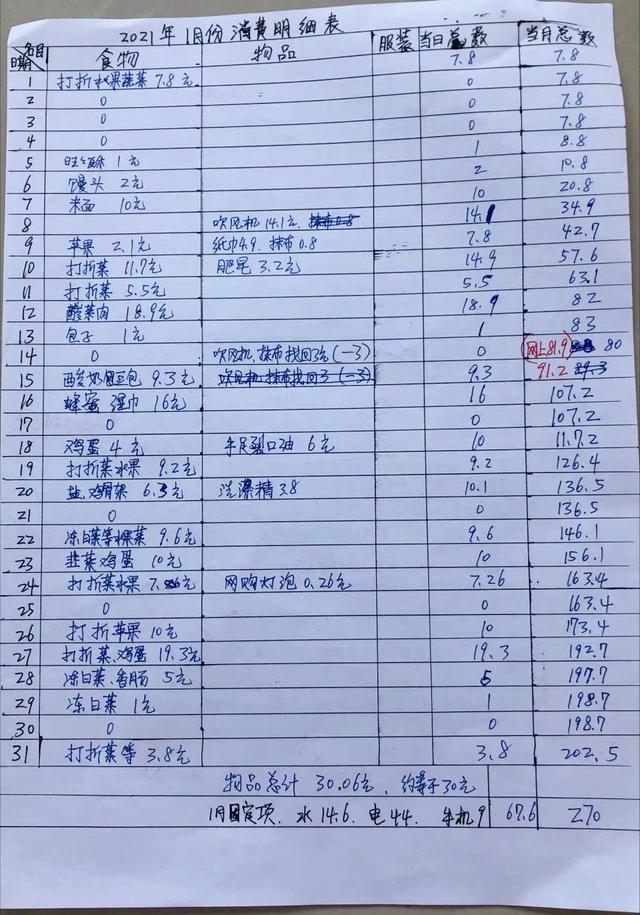 2021年1月份消费明细表
名目 日期 食物 物品 服装 当日总数 当月总数
1 打折水果蔬菜 7.8元 7.8 7.8
2 0 0 7.8
3 0 0 7.8
4 0 0 7.8
5 旺旺酥 1元 1 8.8
6 馒头 2元 2 10.8
7 米面 10元 10 20.8
8 吹风机 14.1元 抹布0.8 14.1 34.9
9 苹果 2.1元 纸巾4.9. 抹布0.8 7.8 42.7
10 打折菜 11.7元 肥皂 3.2元 14.9 57.6
11 打折菜 5.5元 5.5 63.1
12 酸菜肉 18.9元 18.9 82
13 包子 1元 1 83
14 0 吹风机、抹布找回3元(一3) 0 网上81.9 80
15 酸奶包豆包 9.3元 吹风机抹布找回3(一3) 9.3 91.2 89.3
16 蜂蜜 湿巾 16元 16 107.2
17 0 0 107.2
18 鸡蛋 4元 手足裂口油 6元 10 11.7.2
19 打折菜水果 9.2元 9.2 126.4
20 盐、鸡骨架 6.3元 洗澡精 3.8 10.1 136.5
21 0 0 136.5
22 冻白菜等水果菜 9.6元 9.6 146.1
23 韭菜鸡蛋 10元 10 156.1
24 打折菜水果 7. 元 网购灯泡 0.26元 7.26 163.4
25 0 0 163.4
26 打折苹果 10元 10 173.4
27 打折菜、鸡蛋 19.3元 19.3 192.7
28 冻白菜、香肠 5元 5 197.7
29 冻白菜 1元 1 198.7
30 0 0 198.7
31 打折菜等 3.8元 3.8 202.5
物品总计 30.06元, 约等于30元
1月固定项、水14.6、电44、手机9 67.6 270